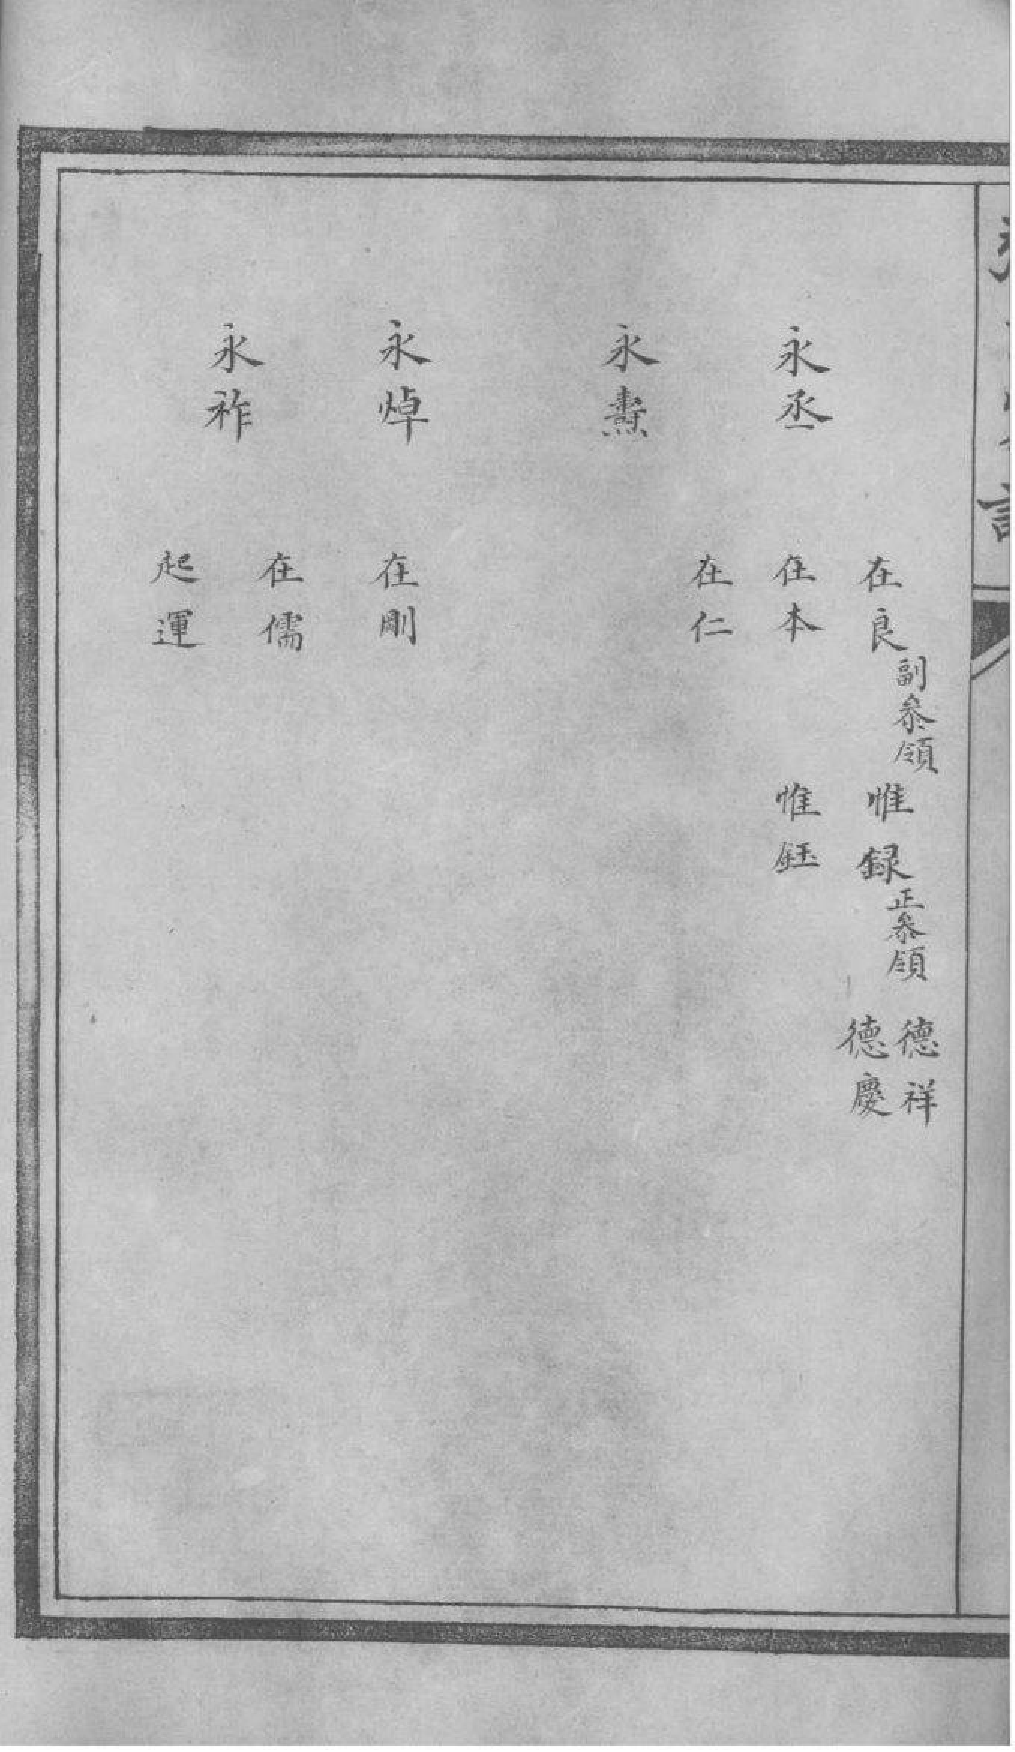 永丞
永燾
永焯
永祚
在良副叅領
在本
在仁
在剛
在儒
起運
惟録正叅領
惟鈺
德祥
德慶